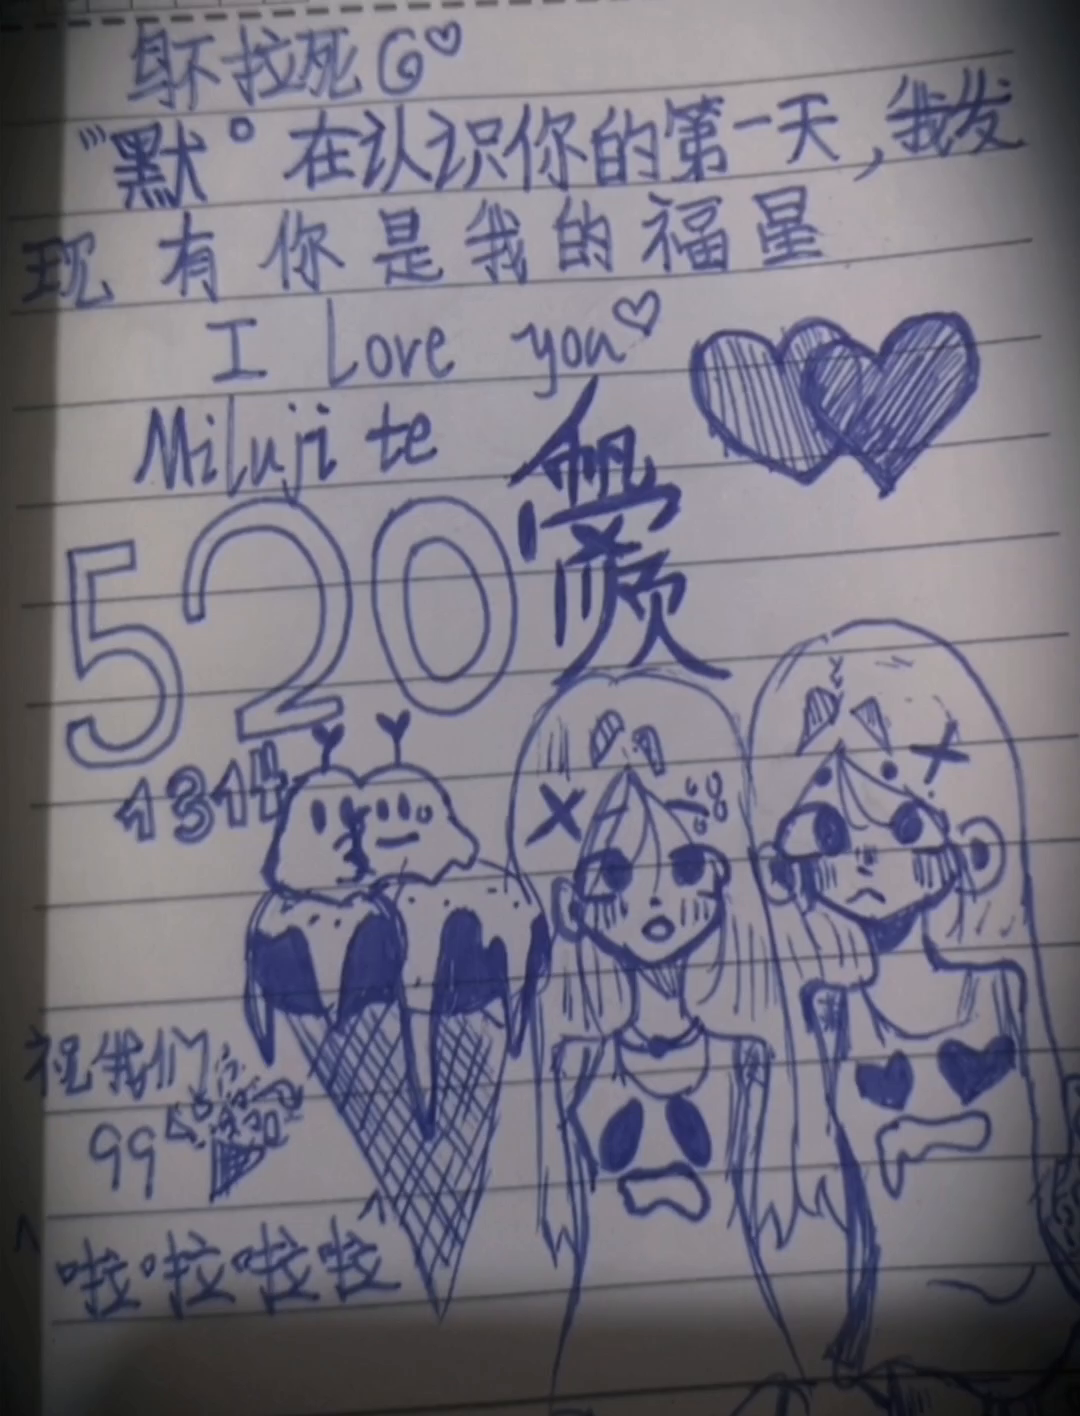 身不拉死G♡
"默"在认识你的第一天，我发
现有你是我的福星
I Love you♡
Miluji te
520
1314
祝我们
99
啦啦啦啦